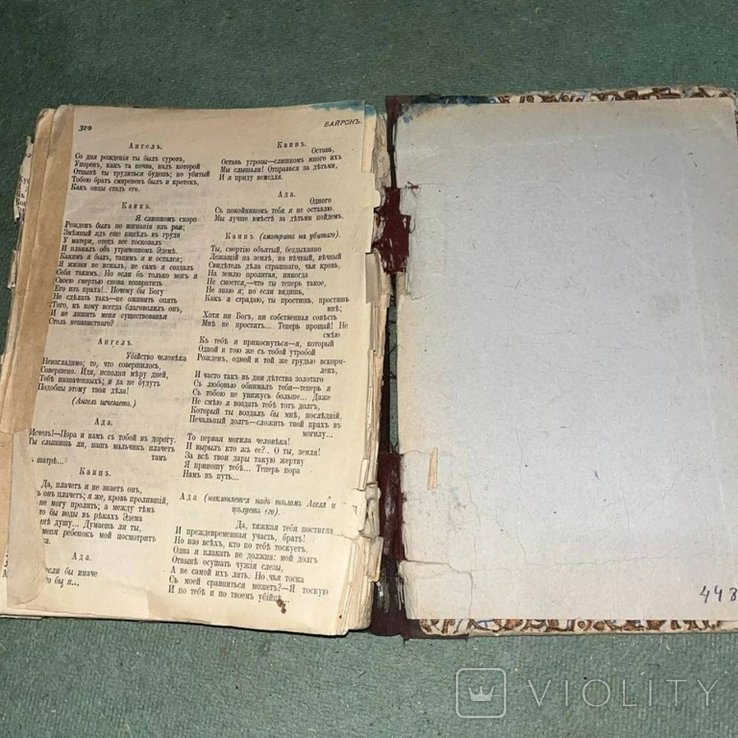 310
БАЙРОНЪ.
Ангелъ.
Со дня рожденія ты былъ суровъ,
Упоренъ, какъ та почва, надъ которой
Отнынѣ ты трудиться будешь; но убитый
Тобою братъ смиренъ былъ и кротокъ,
Какъ овцы стадъ его.
Каинъ.
Я слишкомъ скоро
Рожденъ былъ по изгнаніи изъ рая;
Змѣиный ядъ еще кипѣлъ въ груди
У матери, отецъ все тосковалъ
И плакалъ объ утраченномъ Эдемѣ.
Какимъ я былъ, такимъ я и остался;
Я жизни не искалъ, не самъ я создалъ
Себя такимъ. Но если бъ только могъ я
Своею смертью снова возвратить
Его изъ праха!.. Почему бы Богу
Не сдѣлать такъ—не оживить опять
Того, къ кому всегда благоволилъ онъ,
И не лишить меня существованья
Столь ненавистнаго?
Ангелъ.
Убійство человѣка
Неизгладимо; то, что совершилось,
Совершено. Иди, исполни мѣру дней,
Тебѣ назначенныхъ, и да не будутъ
Подобны этому твои дѣла!
(Ангелъ исчезаетъ.)
Ада.
Исчезъ!—Пора и намъ съ тобой въ дорогу.
Ты слышишь ли, нашъ мальчикъ плачетъ
тамъ
шатрѣ...
Каинъ.
Да, плачетъ и не знаетъ онъ,
онъ плачетъ; я же, кровь пролившій,
не могу пролить; а между тѣмъ
бы воды въ рѣкахъ Эдема
душу... Думаешь ли ты,
меня ребенокъ мой посмотритъ
Ада.
если бы иначе
бы я...
Каинъ.
Оставь,
Оставь угрозы—слишкомъ много ихъ
Мы слышали! Отправься за дѣтьми,
И я приду немедля.
Ада.
Одного
Съ покойникомъ тебя я не оставлю.
Мы лучше вмѣстѣ за дѣтьми пойдемъ.
Каинъ (смотритъ на убитаго).
Ты, смертію объятый, бездыханно
Лежащій на землѣ, но вѣчный, вѣчный
Свидѣтель дѣла страшнаго, чья кровь,
На землю пролитая, никогда
Не смоется,—что ты теперь такое,
Не знаю я; но если видишь,
Какъ я страдаю, ты простишь, простишь
мнѣ;
Хотя ни Богъ, ни собственная совѣсть
Мнѣ не простятъ... Теперь прощай! Не
смѣю
Къ тебѣ я прикоснуться—я, который
Одной и тою же съ тобой утробой
Рожденъ, одной и той же грудью вскорм-
ленъ,
И часто такъ въ дни дѣтства золотаго
Съ любовью обнималъ тебя—теперь я
Съ тобою не увижусь больше... Даже
Не смѣю я воздать тебѣ тотъ долгъ,
Который ты воздалъ бы мнѣ, послѣдній,
Печальный долгъ—сложить твой прахъ въ
могилу...
То первая могила человѣка!
И вырылъ кто жъ ее?.. О ты, земля!
За всѣ твои дары такую жертву
Я приношу тебѣ... Теперь пора
Намъ въ путь...
Ада (наклоняется надъ тѣломъ Авеля и
цѣлуетъ его).
Да, тяжкая тебя постигла
И преждевременная участь, братъ!
Но изо всѣхъ, кто по тебѣ тоскуетъ,
Одна я плакать не должна: мой долгъ
Отнынѣ осушать чужія слезы,
А не самой ихъ лить. Но чья тоска
Съ моей сравниться можетъ?—Я тоскую
И по тебѣ и по твоемъ убійцѣ...
443
VIOLITY